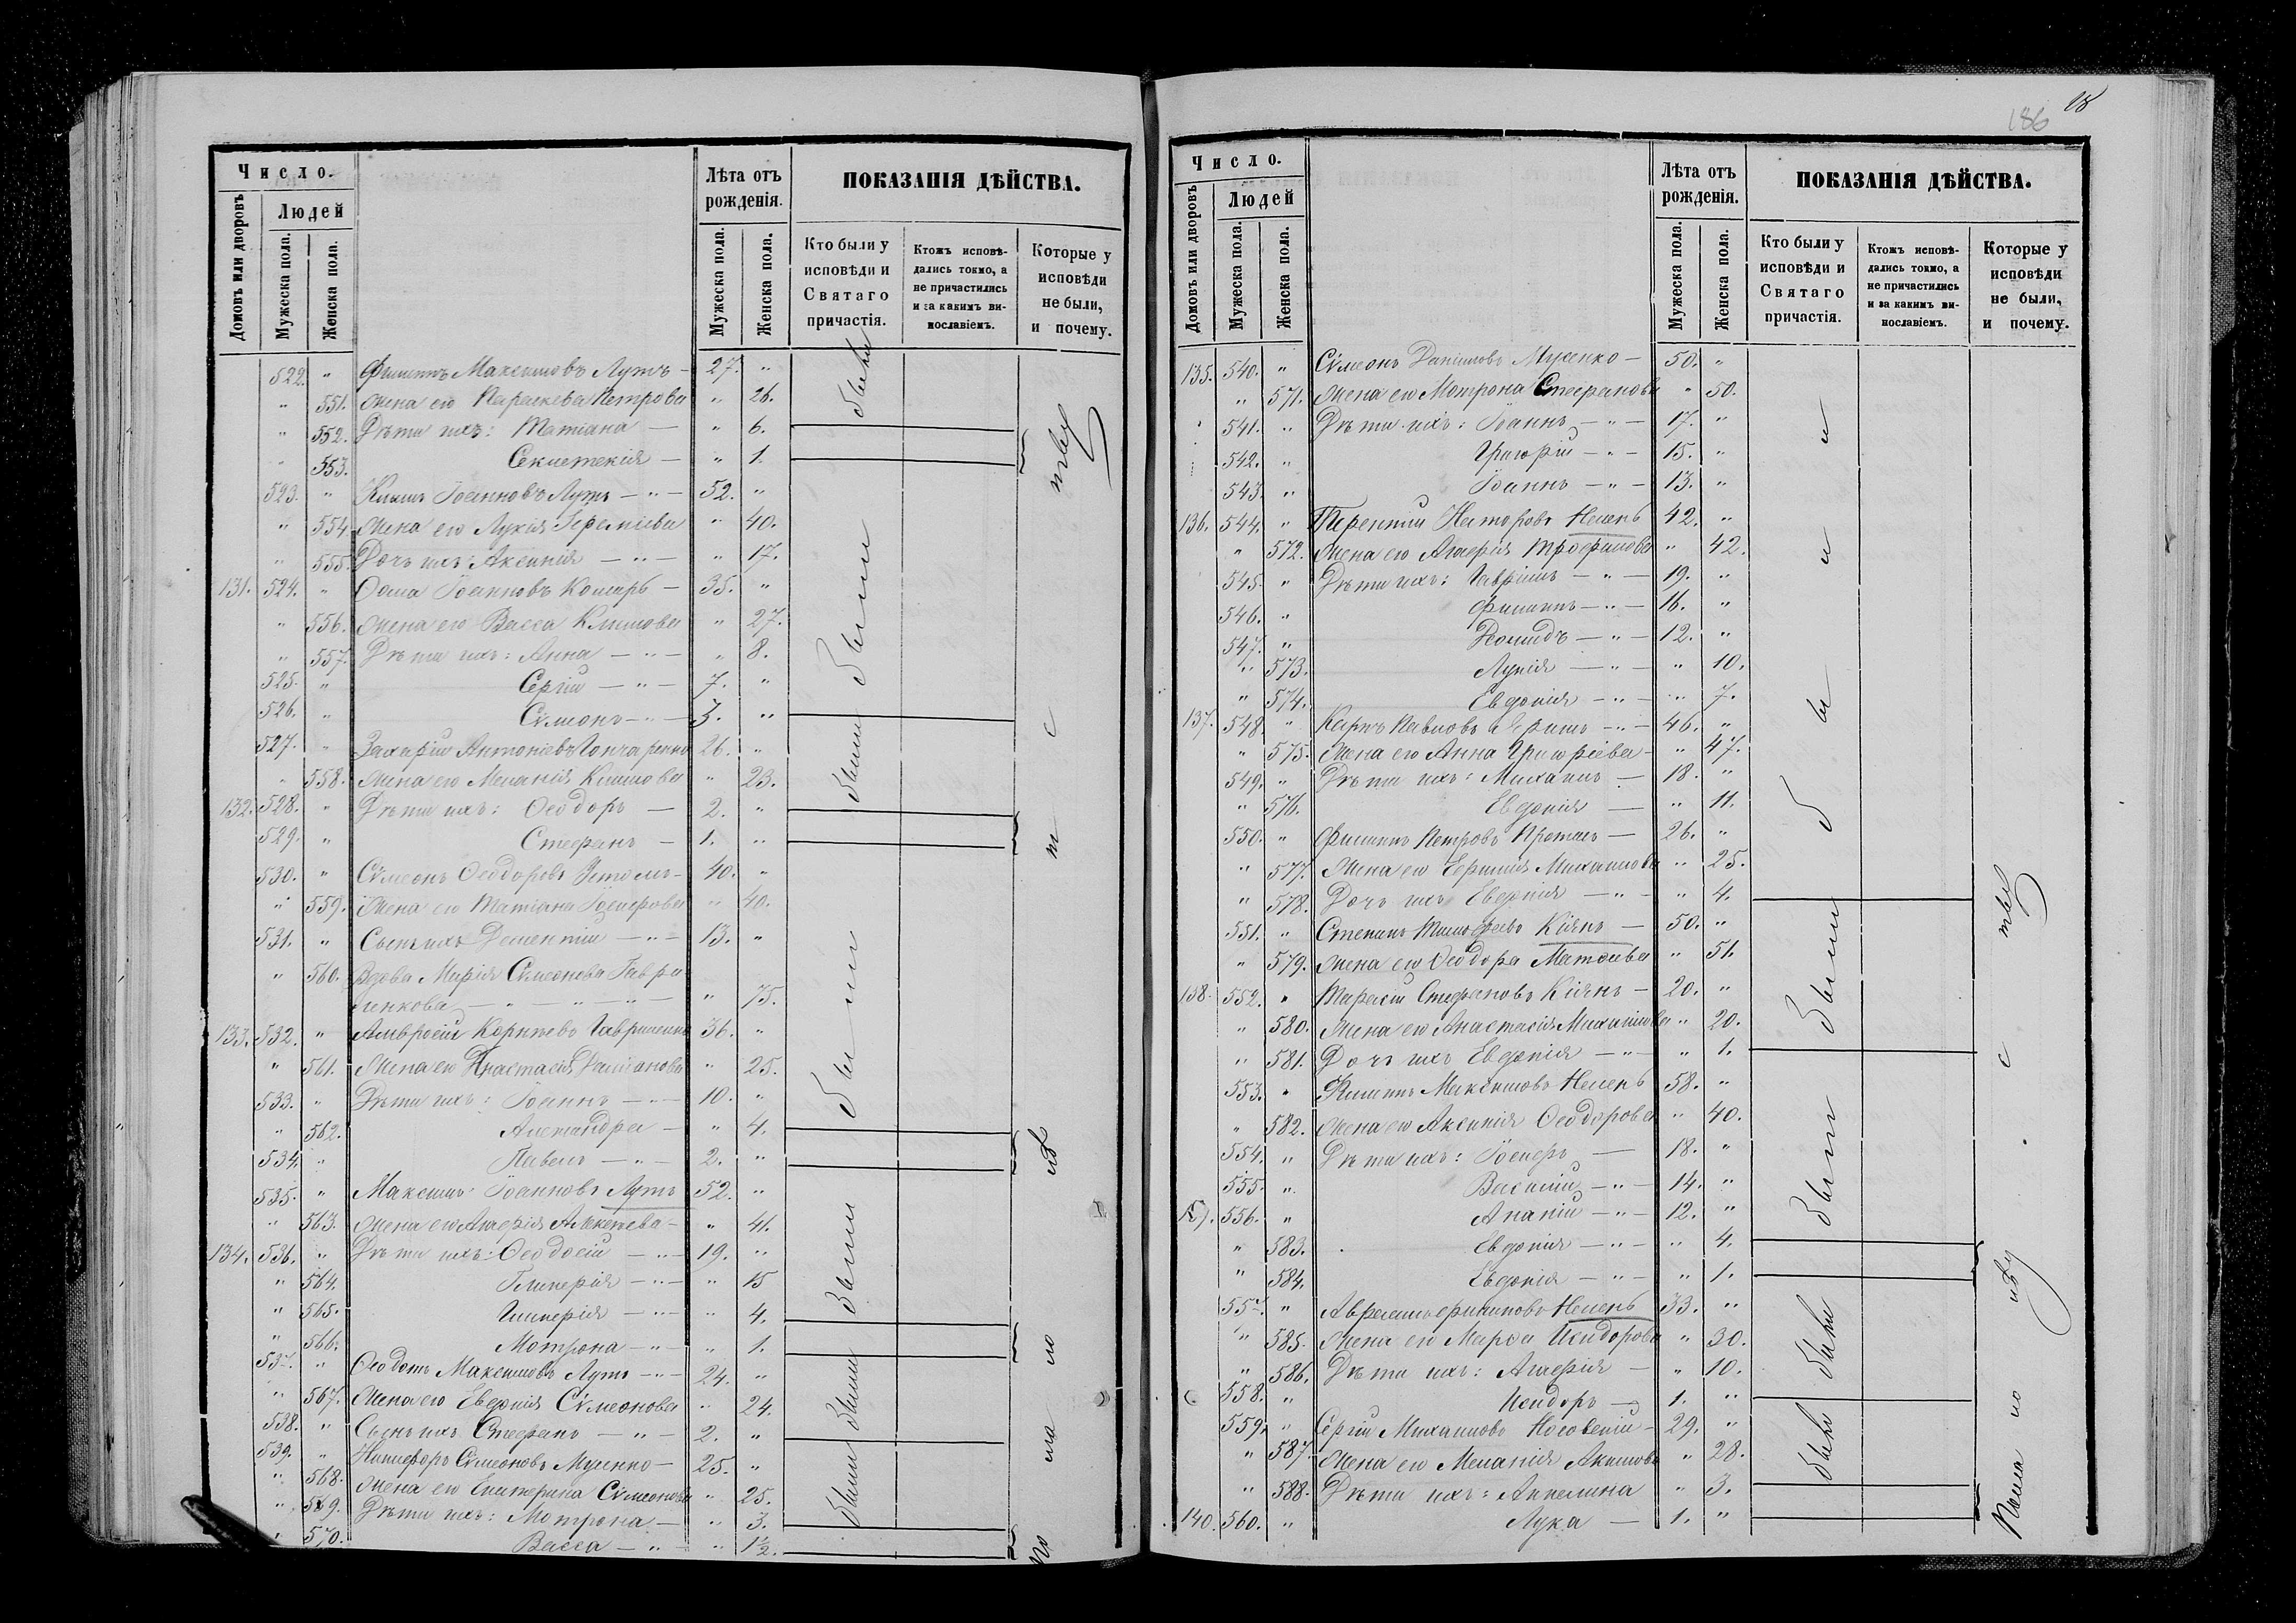 Число.
Лѣта отъ рожденія.
ПОКАЗАНІЯ ДѢЙСТВА.
Домовъ или дворовъ
Людей
Мужеска пола.
Женска пола.
Мужеска пола.
Женска пола.
Кто были у исповѣди и Святаго причастія.
Ктожъ исповѣ-дались токмо, а не причастились и за какимъ ви-нославіемъ.
Которые у исповѣди не были, и почему.
522. " Филиппъ Максимовъ Лутъ - 27. "
" 551. Жена его Параскева Петрова " 26.
" 552. Дѣти ихъ: Татіана — " 6.
" 553. — " 1.
523. " Климъ Іоанновъ Лутъ — " — 52. "
" 554. Жена его Лукія Іереміева " 40.
" 555. Дочь ихъ: Аксинія — " — " 17.
131. 524. " Ѳома Іоанновъ Комаръ — 35. "
" 556. Жена его Васса Климова " 27.
" 557. Дѣти ихъ: Анна — " — " 8.
525. " Сергій — " — 7. "
526. " Сѵмеонъ — " — 3. "
527. " Захарій Антоніевъ Гончаренко 26. "
" 558. Жена его Меланія Климова " 23.
132. 528. " Дѣти ихъ: Ѳеодоръ — 2. "
529. " Стефанъ — 1. "
530. " Сѵмеонъ Ѳеодоровъ 40. "
" 559. Жена его Татіана Іосифова " 40.
531. " Сынъ ихъ Дементій — " — 13. "
" 560. Вдова Марія Сѵмеонова Гаври
ленкова — " — " — " — " 75.
133. 532. " Амвросій Корнѣевъ Гавриленко 36. "
" 561. Жена его Анастасія Даміанова " 25.
533. " Дѣти ихъ: Іоаннъ — " — 10. "
" 562. Александра — " 4.
534. " Павелъ — " — 2. "
535. " Максимъ Іоанновъ Лутъ 52. "
" 563. Жена его Агафія Алексѣева - " 41.
134. 536. " Дѣти ихъ: Ѳеодосій — " — 19. "
" 564. Гликерія — " — " 15
" 565. Гликерія — " — " 4.
" 566. Мотрона — " — " 1.
537. " Ѳеодотъ Максимовъ Лутъ — " — 24. "
" 567. Жена его Евдокія Сѵмеонова " 24.
538. " Сынъ ихъ Стефанъ — " — 2. "
539. " Никифоръ Сѵмеоновъ Мусенко — 25. "
" 568. Жена его Екатерина Сѵмеонова " 25.
" 569. Дѣти ихъ: Мотрона — " 3.
" 570. Васса — " — " 1½.
были
были
были
были
были
были
были
186
18
Число.
Лѣта отъ рожденія.
ПОКАЗАНІЯ ДѢЙСТВА.
Домовъ или дворовъ
Людей
Мужеска пола.
Женска пола.
Мужеска пола.
Женска пола.
Кто были у исповѣди и Святаго причастія.
Ктожъ исповѣ-дались токмо, а не причастились и за какимъ ви-нославіемъ.
Которые у исповѣди не были, и почему.
135. 540. " Сѵмеонъ Даниловъ Мусенко — 50. "
" 571. Жена его Мотрона Стефанова " 50.
541. " Дѣти ихъ: Іоаннъ — " — 17. "
542. " Григорій — " — 15. "
543. " Іоаннъ — " — 13. "
136. 544. " Терентій Несторовъ Нелень 42. "
" 572. Жена его Агафія Трофимова " 42.
545. " Дѣти ихъ: Гавріилъ — " — 19. "
546. " Филиппъ — " — 16. "
547. " Леонидъ — " — 12. "
" 573. Лукія — " — " 10.
" 574. Евдокія — " — " 7.
137. 548. " Карпъ Павловъ — " — 46. "
" 575. Жена его Анна Григоріева - " 47.
549. " Дѣти ихъ: Михаилъ — 18. "
" 576. Евдокія — " 11.
550. " Филиппъ Петровъ — 26. "
" 577. Жена его Михаилова " 25.
" 578. Дочь ихъ Евдокія — " — " 4.
551. " Степанъ Кіянъ — 50. "
" 579. Жена его Ѳеодора Матѳиева " 51.
138. 552. " Тарасій Стефановъ Кіянъ — 20. "
" 580. Жена его Анастасія Михаилова " 20.
" 581. Дочь ихъ Евдокія — " — " 1.
553. " Филиппъ Максимовъ Нелень 58. "
" 582. Жена его Аксинія Ѳеодорова " 40.
554. " Дѣти ихъ: Іосифъ — 18. "
555. " Василій — " — 14. "
139. 556. " Ананій — " — 12. "
" 583. Евдокія — " — " 4.
" 584. Евдокія — " — " 1.
557. " Авраамъ Филиповъ Нелень 33. "
" 585. Жена его Марѳа Исидорова " 30.
" 586. Дѣти ихъ: Агафія — " 10.
558. " Исидоръ — 1. "
559. " Сергій Михаиловъ - 29. "
" 587. Жена его Меланія Акимова " 28.
" 588. Дѣти ихъ: Акилина " 3.
140. 560. " Лука — 1. "
были
были
были
были
были